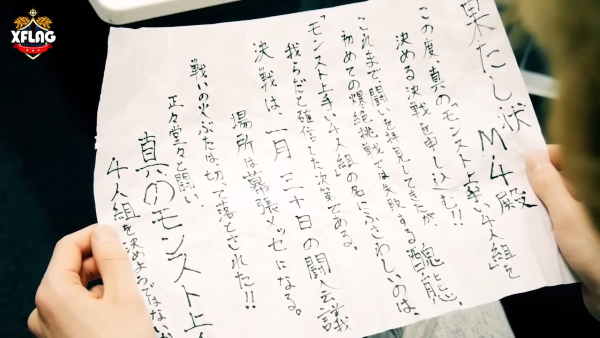 XFLAG
果たし状 M4殿
この度、真の「モンスト上手い4人組」を
決める決戦を申し込む!!
これまで、闘いを拝見してきたが、
初めての爆絶挑戦では失敗する醜態、
「モンスト上手い4人組」の名にふさわしいのは、
我らだと確信した次第である。
決戦は、一月三十日の闘会議
場所は幕張メッセになる。
戦いの火ぶたは切って落とされた!!
正々堂々と闘い、
真のモンスト上
4人組を決めようではないか